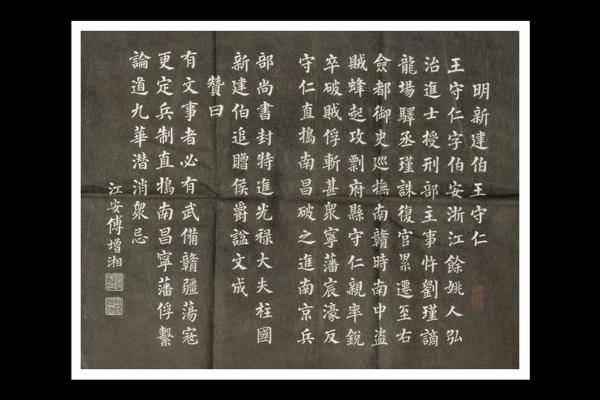 明新建伯王守仁
王守仁字伯安浙江餘姚人弘
治進士授刑部主事忤劉瑾謫
龍場驛丞瑾誅復官累遷至右
僉都御史巡撫南贛時南中盜
賊蜂起攻剽府縣守仁親率銳
卒破賊俘斬甚衆寧藩宸濠反
守仁直搗南昌破之進南京兵
部尚書封特進光祿大夫柱國
新建伯追贈侯爵謚文成
贊曰
有文事者必有武備贛疆蕩寇
更定兵制直搗南昌寧藩俘繫
論道九華潜消衆忌
江安傅增湘